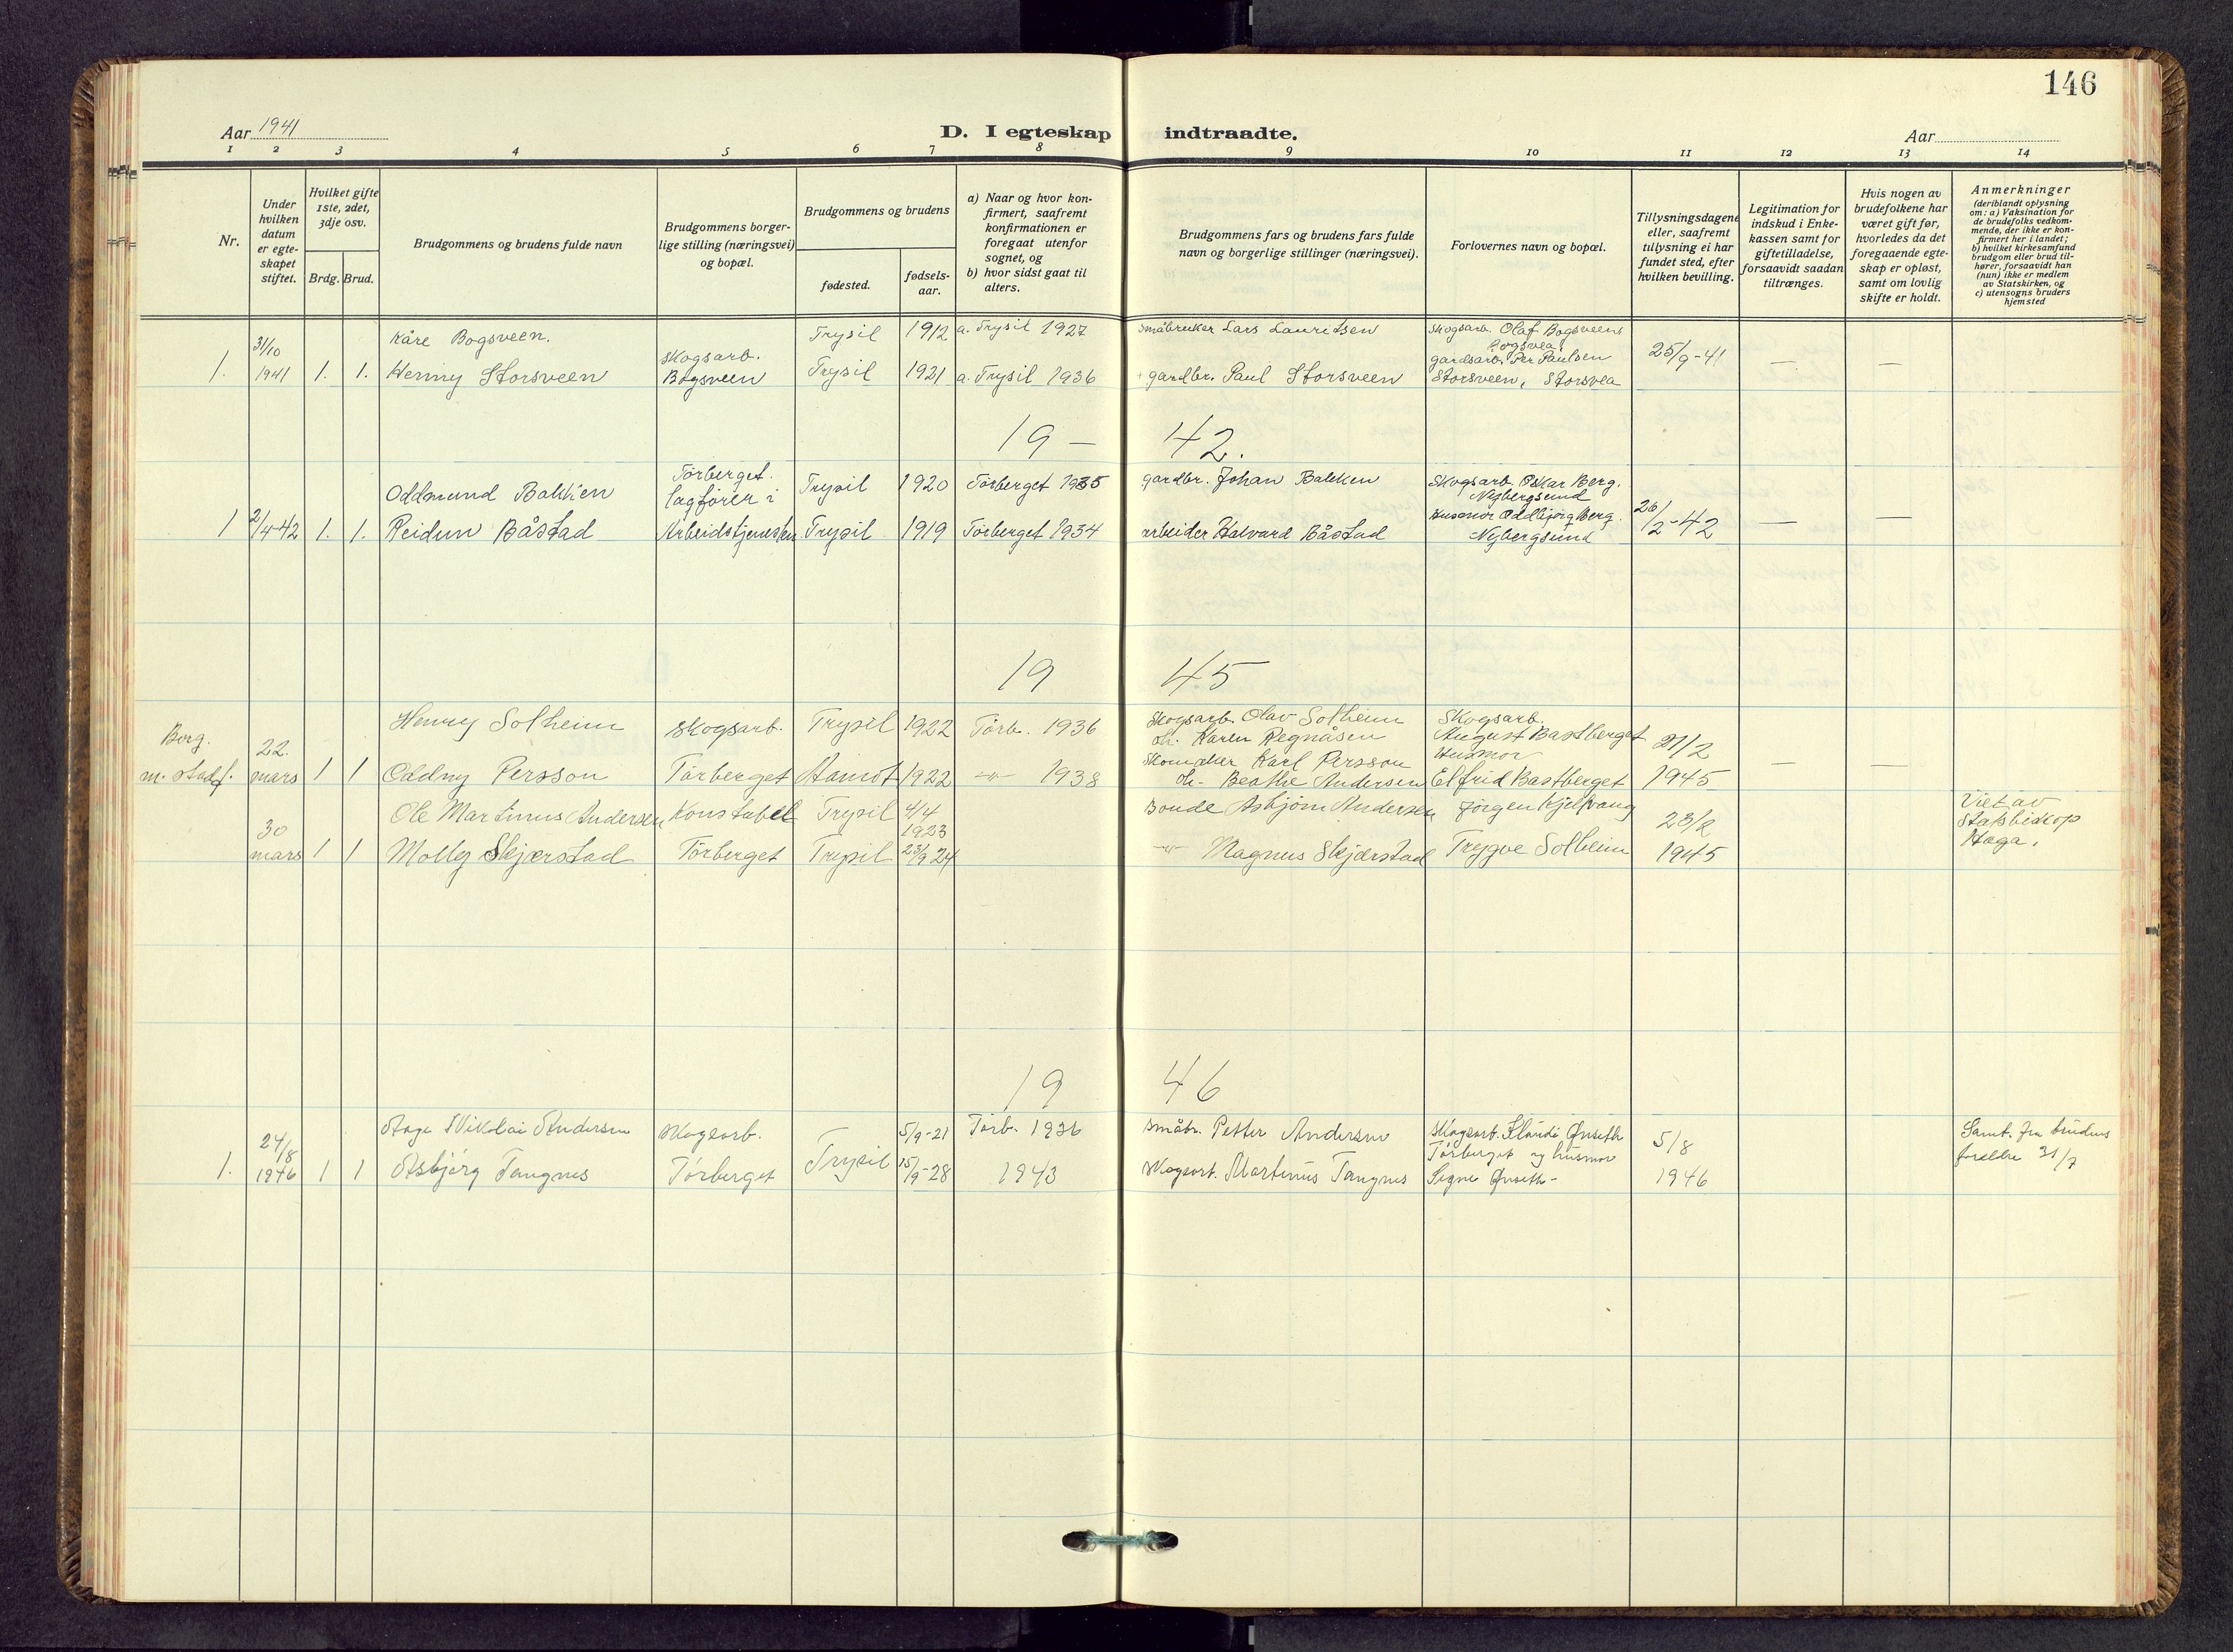 146
Aar 1941
D. I egteskap indtraadte.
Aar
1 2 3 4 5 6 7 8 9 10 11 12 13 14
Nr.
Under hvilken datum er egteskapet stiftet.
Hvilket gifte 1ste, 2det, 3dje osv.
Brdg. Brud.
Brudgommens og brudens fulde navn
Brudgommens borgerlige stilling (næringsvei) og bopæl.
Brudgommens og brudens
fødested.
fødselsaar.
a) Naar og hvor konfirmert, saafremt konfirmationen er foregaat utenfor sognet, og
b) hvor sidst gaat til alters.
Brudgommens fars og brudens fars fulde navn og borgerlige stillinger (næringsvei).
Forlovernes navn og bopæl.
Tillysningsdagene eller, saafremt tillysning ei har fundet sted, efter hvilken bevilling.
Legitimation for indskud i Enkekassen samt for giftetilladelse, forsaavidt saadan tiltrænges.
Hvis nogen av brudefolkene har været gift før, hvorledes da det foregaaende egteskap er opløst, samt om lovlig skifte er holdt.
Anmerkninger (deriblandt oplysning om: a) Vaksination for de brudefolks vedkommende, der ikke er konfirmert her i landet; b) hvilket kirkesamfund brudgom eller brud tilhører, forsaavidt han (hun) ikke er medlem av Statskirken, og c) utensogns bruders hjemsted
Kåre Bogsveen. Trysil 1912 a. Trysil 1927 småbruker Lars Lauritsen Skogsarb. Olaf Bogsveen
1. 31/10 1941 1. 1. Henny Storsveen Skogsarb. Bogsveen Trysil 1921 a. Trysil 1936 gardbr. Paul Storsveen Bogsvea gardsarb. Per Paulsen Storsveen, Storsvea 25/9-41 — —
19 — 42.
Oddmund Bakken Törberget. Trysil 1920 Törberget 1935 gardbr. Johan Bakken Skogsarb. Oskar Berg. Nybergsund
1 2/4-42 1. 1. Reidun Båstad lagförer i Arbeidstjenesten Trysil 1919 Törberget 1934 arbeider Halvard Båstad Husmor Oddbjörg Berg. Nybergsund 26/2-42 — —
19 45
Henry Solheim Skogsarb. Trysil 1922 Törb. 1936 Skogsarb. Olav Solheim Karen Regnåsen Skogsarb. August Bastberget
Borg. 22. mars 1 1 Oddny Persson Törberget Aamot 1922 -"- 1938 Skomaker Karl Persson Beathe Andersen Husmor Elfrid Bastberget 21/2 1945 — —
Ole Martinus Andersen Konstabel Trysil 4/4 1923 Bonde Asbjörn Andersen Jörgen Kjelvang
30 mars 1 1 Molly Skjærstad Törberget Trysil 23/9 24 -"- Magnus Skjærstad Trygve Solheim 23/2 1945 Viet av Statsbiskop Haga.
19 46
Aage Nikolai Andersen Skogsarb. 5/9-21 Törb. 1936 småbr. Petter Andersen Skogsarb. Klaudi Ørseth Törberget og husmor
1. 24/8 1946 1 1 Asbjörg Tangnes Törberget Trysil 15/9-28 1943 Skogsarb. Martinus Tangnes Signe Ørseth - 5/8 1946 Samt. fra brudens foreldre 31/7